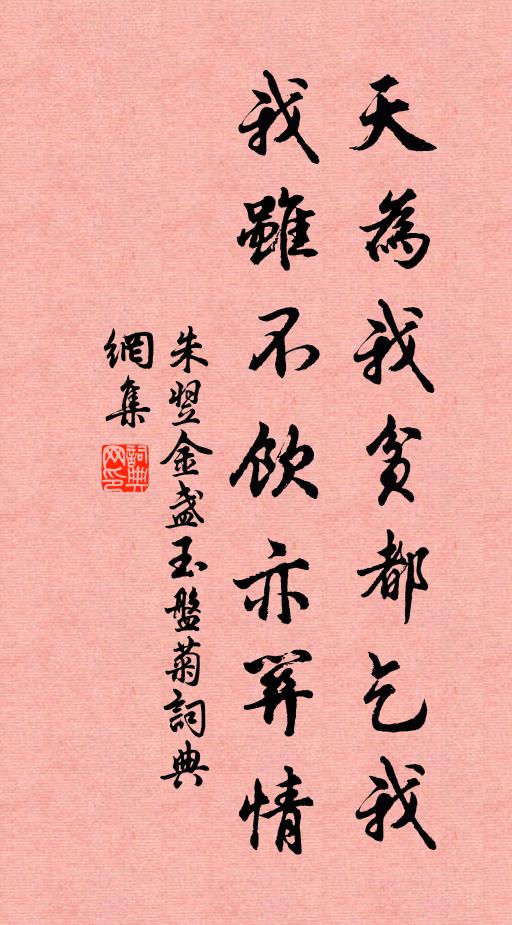 天為我貧都乞我
我雖不飲亦關情
朱翌金盞玉盤菊詞典
網集
詞典
网印